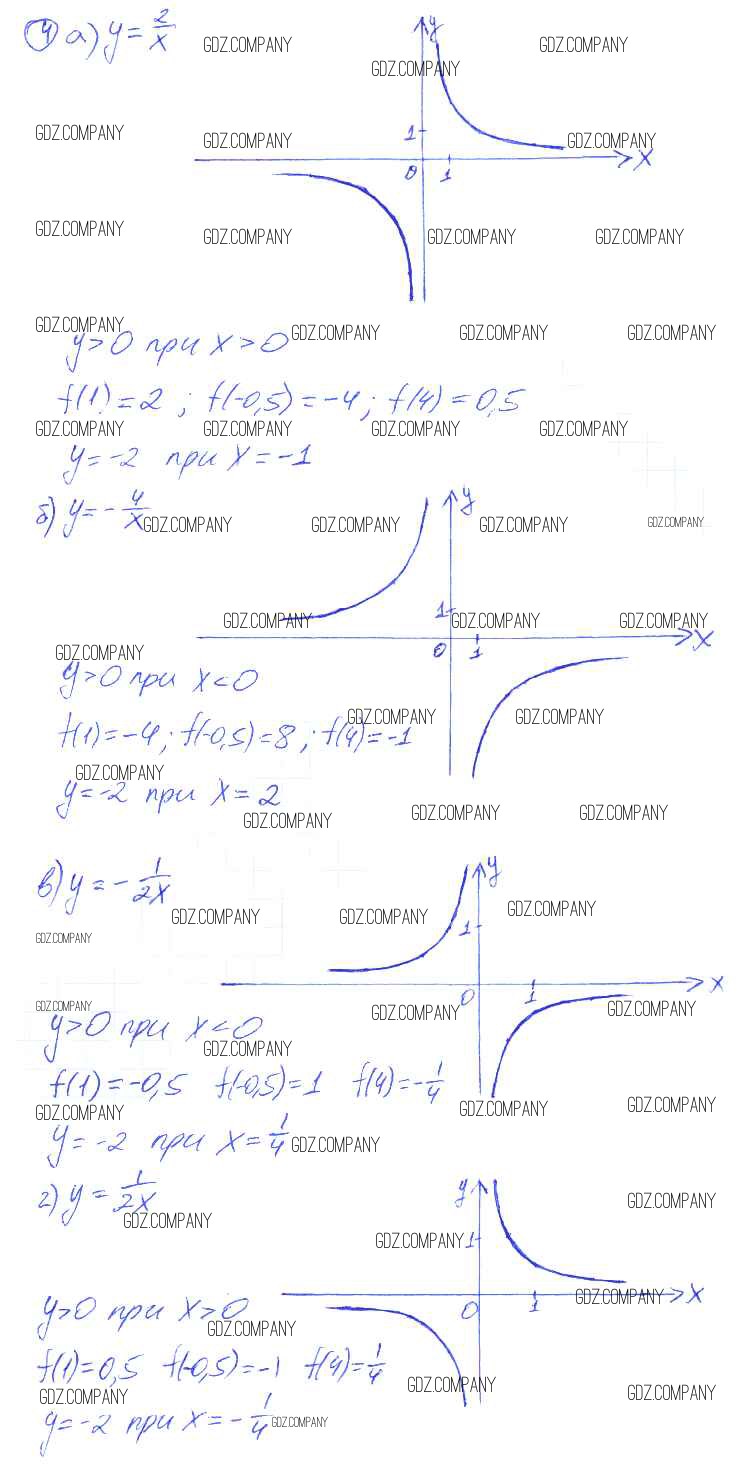 4 а) y = 2/x
y
GDZ.COMPANY GDZ.COMPANY
GDZ.COMPANY
GDZ.COMPANY GDZ.COMPANY 1 GDZ.COMPANY
x
0 1
GDZ.COMPANY GDZ.COMPANY GDZ.COMPANY GDZ.COMPANY
GDZ.COMPANY GDZ.COMPANY GDZ.COMPANY GDZ.COMPANY
y > 0 при x > 0
f(1) = 2 ; f(-0,5) = -4 ; f(4) = 0,5
GDZ.COMPANY GDZ.COMPANY GDZ.COMPANY GDZ.COMPANY
y = -2 при x = -1
б) y = - 4/x
y
GDZ.COMPANY GDZ.COMPANY GDZ.COMPANY GDZ.COMPANY
1
GDZ.COMPANY GDZ.COMPANY GDZ.COMPANY
x
0 1
GDZ.COMPANY
y > 0 при x < 0
GDZ.COMPANY GDZ.COMPANY
f(1) = -4 ; f(-0,5) = 8 ; f(4) = -1
GDZ.COMPANY
y = -2 при x = 2
GDZ.COMPANY GDZ.COMPANY GDZ.COMPANY
в) y = - 1/2x
y
GDZ.COMPANY GDZ.COMPANY GDZ.COMPANY
1
GDZ.COMPANY
x
0 1
GDZ.COMPANY GDZ.COMPANY GDZ.COMPANY
y > 0 при x < 0
GDZ.COMPANY
f(1) = -0,5 f(-0,5) = 1 f(4) = - 1/4
GDZ.COMPANY GDZ.COMPANY GDZ.COMPANY
y = -2 при x = 1/4
GDZ.COMPANY
г) y = 1/2x
y
GDZ.COMPANY GDZ.COMPANY
GDZ.COMPANY 1
GDZ.COMPANY x
0 1
y > 0 при x > 0
GDZ.COMPANY
f(1) = 0,5 f(-0,5) = -1 f(4) = 1/4
GDZ.COMPANY GDZ.COMPANY GDZ.COMPANY
y = -2 при x = - 1/4
GDZ.COMPANY